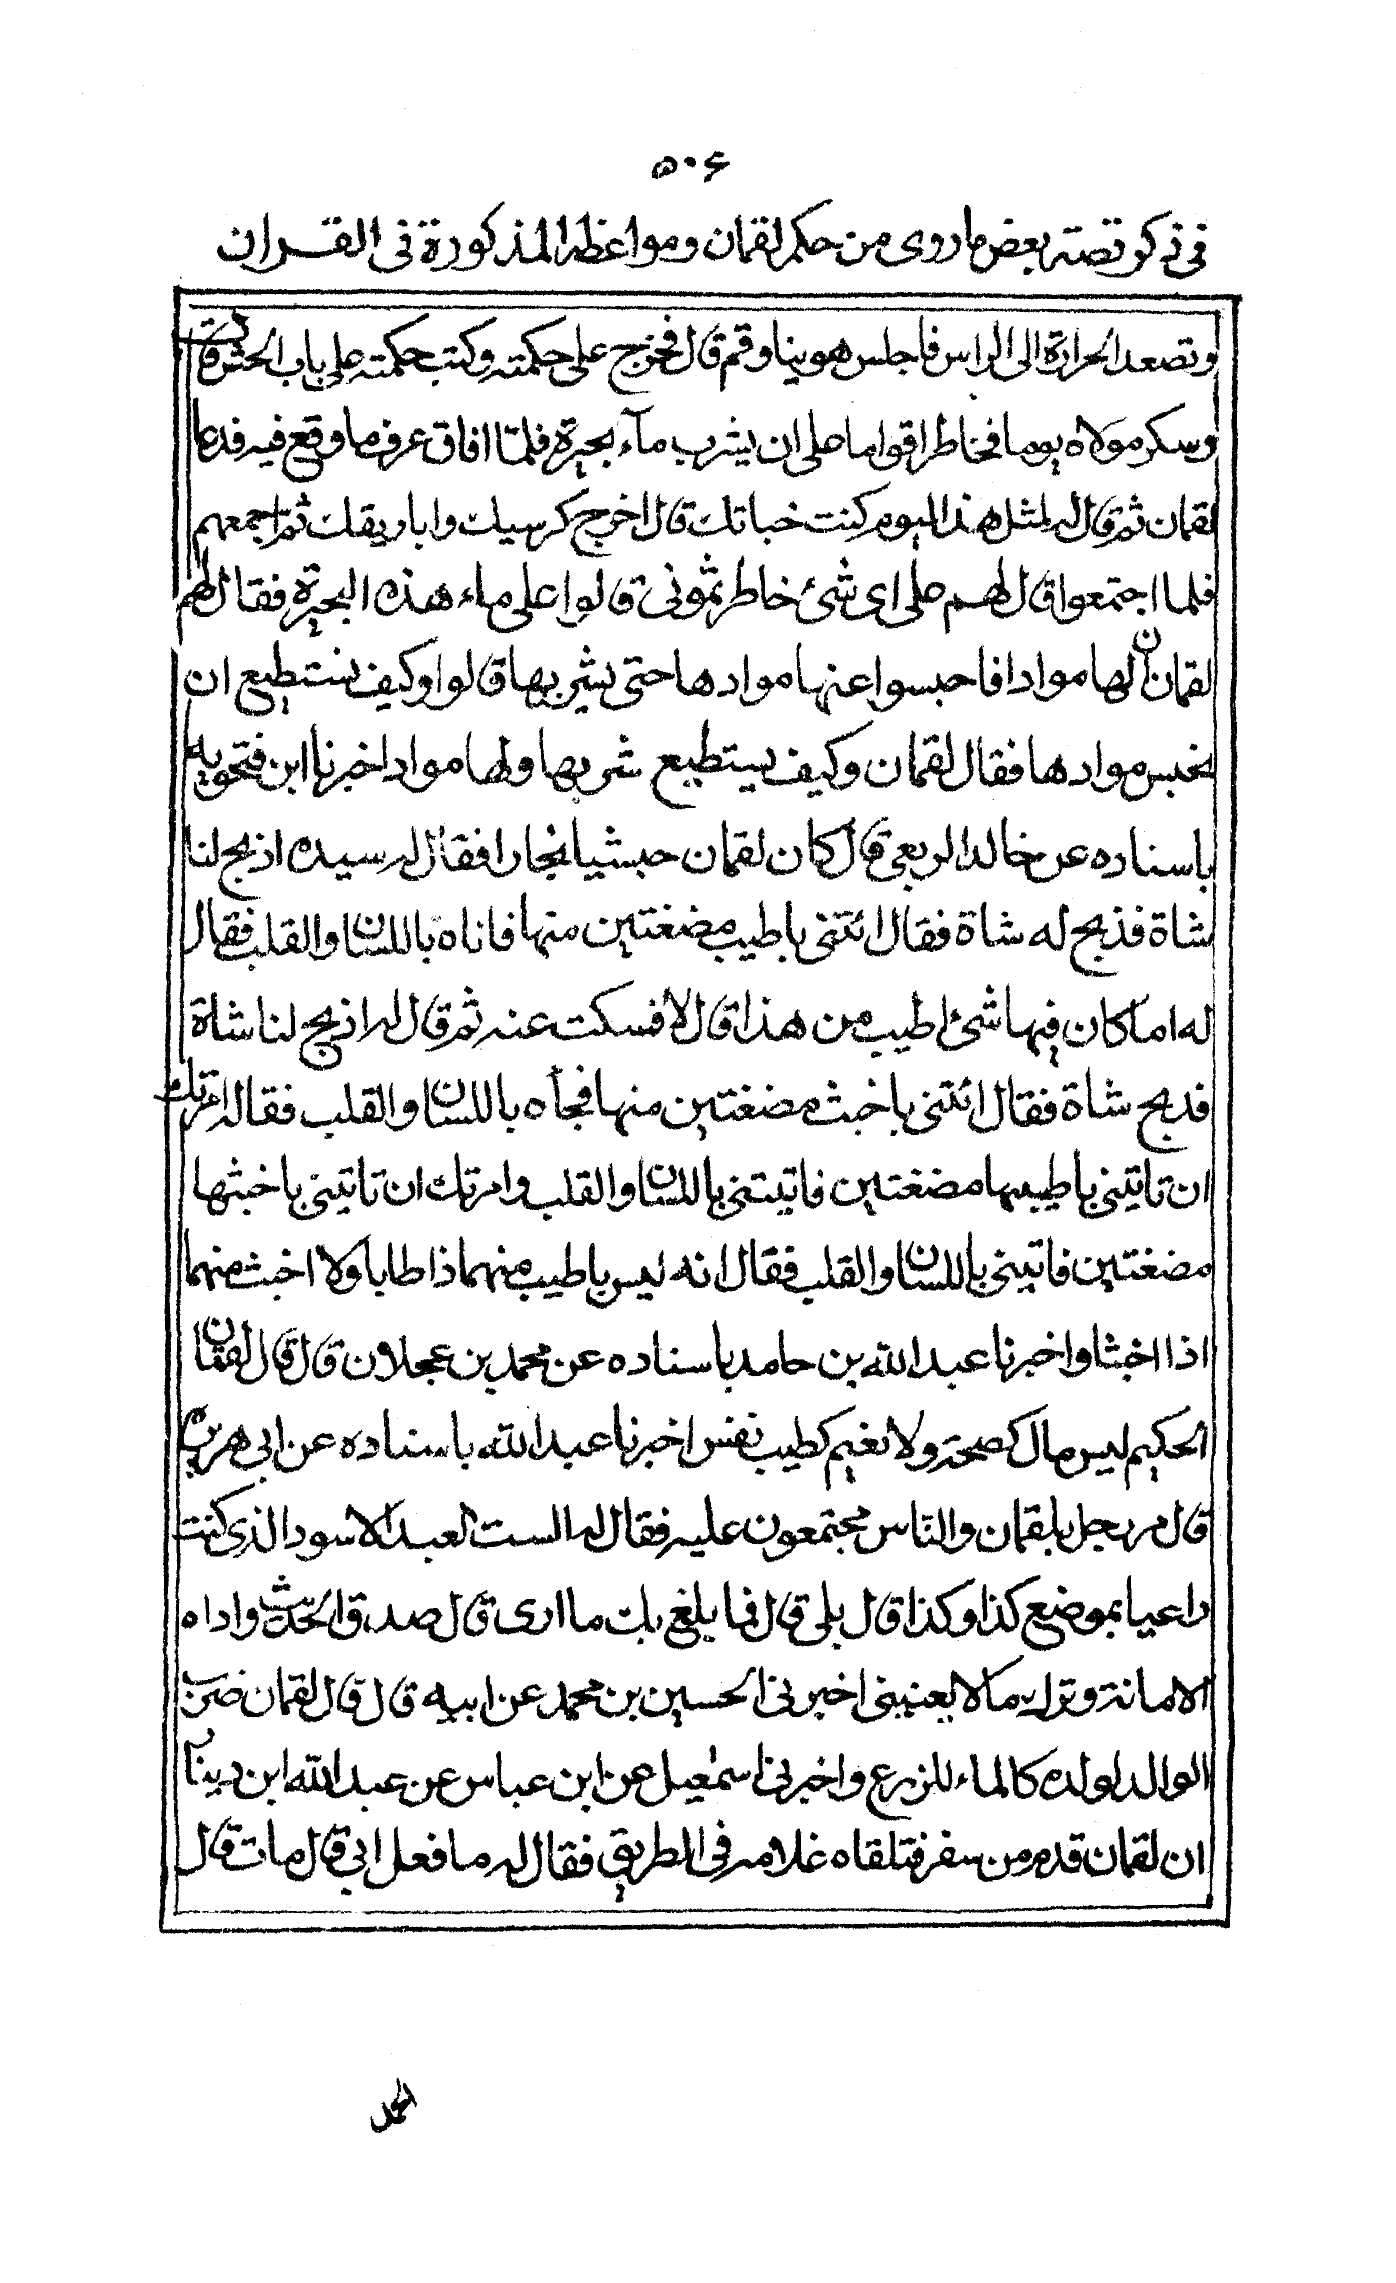 ۵۰۶
فى ذكر قصته بعض ما روى من حكم لقمان ومواعظه المذكورة فى القران
وتصعد الحرارة الى الراس فاجلس هوينا وقم قال فخرج على حكمته وكتب حكمته على باب الحش قال
وسكر مولاه يوما فخاطر اقواما على ان يشرب مآء بحيرة فلمّا افاق عرف ما وقع فيه فدعا
لقمان ثم قال له لمثل هذا اليوم كنت خباتك قال اخرج كرسيك واباريقك ثم اجمعهم
فلما اجتمعوا قال لهم على اى شئ خاطرتمونى قالوا على ماء هذه البحيرة فقال لهم
لقمان ان لها موادا فاحبسوا عنها موادها حتى يشربها قالوا وكيف نستطيع ان
نحبس موادها فقال لقمان وكيف يستطيع شربها ولها مواد اخبرنا ابن فتحويه
باسناده عن خالد الربعى قال كان لقمان حبشيا نجارا فقال له سيده اذبح لنا
شاة فذبح له شاة فقال ائتنى باطيب مضغتين منها فاتاه باللسان والقلب فقال
له اما كان فيها شئ اطيب من هذا قال لا فسكت عنه ثم قال له اذبح لنا شاة
فذبح شاة فقال ائتنى باخبث مضغتين منها فجأه باللسان والقلب فقال له امرتك
ان تاتينى باطيبها مضغتين فاتيتنى باللسان والقلب وامرتك ان تاتينى باخبثها
مضغتين فاتيتنى باللسان والقلب فقال انه ليس باطيب منهما اذا طابا ولا اخبث منهما
اذا اخبثا واخبرنا عبد الله بن حامد باسناده عن محمد بن عجلان قال قال لقمان
الحكيم ليس مال كصحة ولا نعيم كطيب نفس اخبرنا عبد الله باسناده عن ابى هريرة
قال مر رجل بلقمان والناس مجتمعون عليه فقال له الست العبد الاسود الذى كنت
راعيا بموضع كذا وكذا قال بلى قال فما بلغ بك ما ارى قال صدق الحديث واداه
الامانة وترك ما لا يعنينى اخبرنى الحسين بن محمد عن ابيه قال قال لقمان ضرب
الوالد لولده كالماء للزرع واخبرنى اسمعيل عن ابن عباس عن عبد الله ابن دينار
ان لقمان قدم من سفر فتلقاه غلامه فى الطريق فقال له ما فعل ابى قال مات قال
الحمد